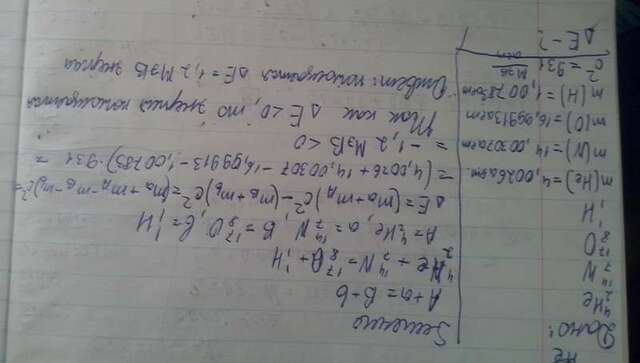 Дано:
⁴₂He
¹⁴₇N
¹⁷₈O
¹₁H
m(He) = 4,0026 аем.
m(N) = 14,00307 аем
m(O) = 16,99913 аем
m(H) = 1,00785 аем
c² = 931 МэВ/аем
ΔE - ?
Решение
A + a = B + b
⁴₂He + ¹⁴₇N = ¹⁷₈O + ¹₁H
A = ⁴₂He, a = ¹⁴₇N, B = ¹⁷₈O, b = ¹₁H
ΔE = (mₐ + m_A) c² - (m_B + m_b) c² = (mₐ + m_A - m_B - m_b) c² =
= (4,0026 + 14,00307 - 16,99913 - 1,00785) · 931 =
= - 1,2 МэВ < 0
Так как ΔE < 0, то энергия поглощается
Ответ: поглощается ΔE = 1,2 МэВ энергии